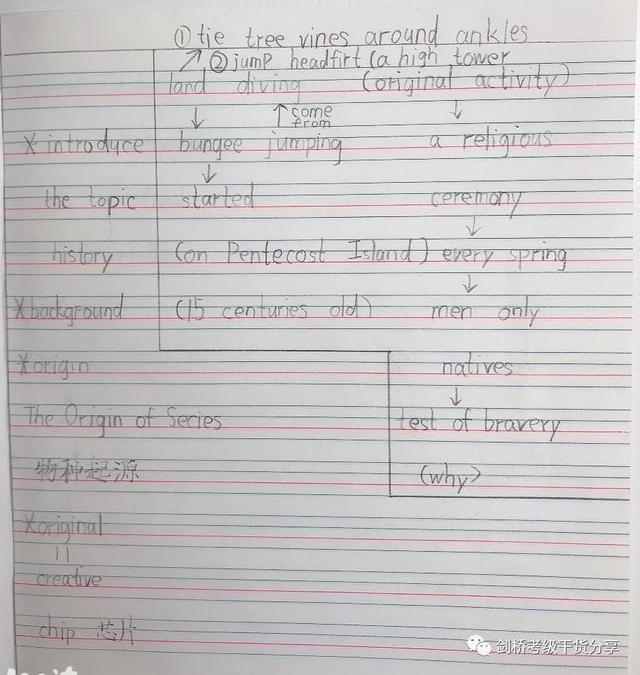 ① tie tree vines around ankles
↗ ② jump headfirt (a high tower
land diving (original activity)
↓ ↑ come from ↓
* introduce bungee jumping a religious
↓
the topic started ceremony
↓
history (on Pentecost Island) every spring
↓
* background (15 centuries old) men only
* origin natives
↓
The Origin of Secies test of bravery
物种起源 (why>
* original
=
creative
chip 芯片
剑桥考级干货分享